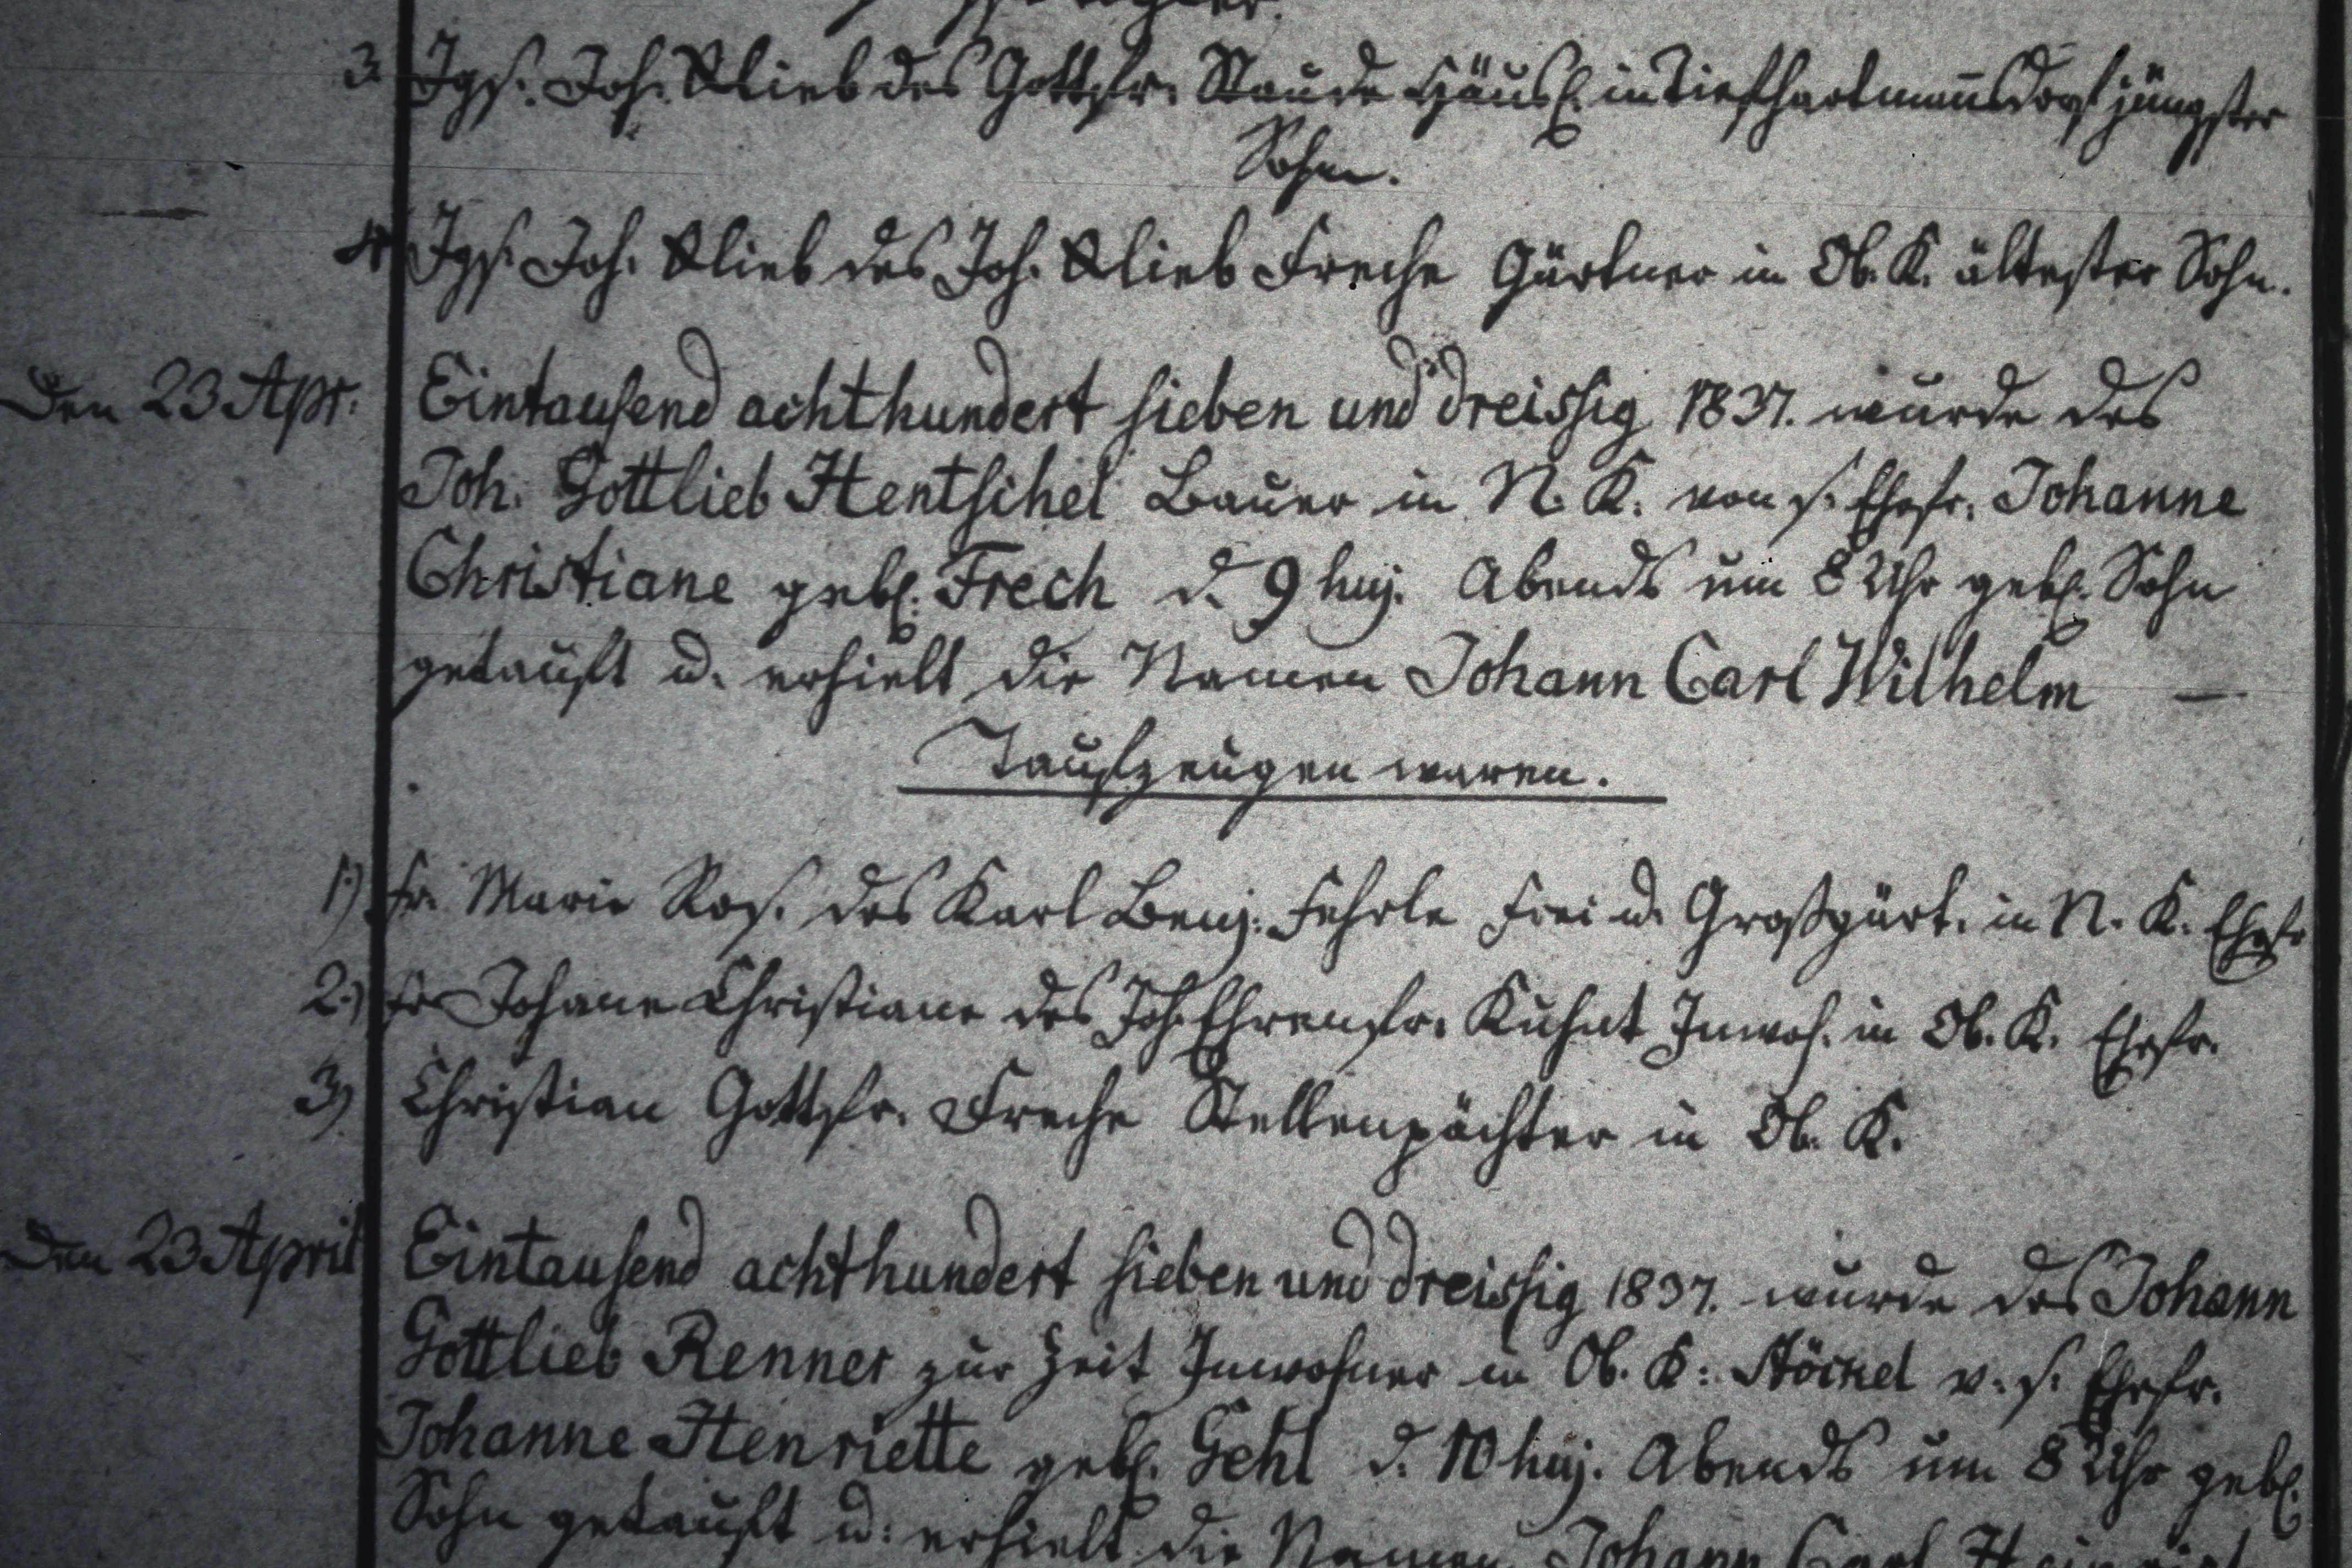 3. Jgs. Joh. Glieb des Gottfr. Staude Häusl. in Tiefhartmannsdorf jüngster
Sohn.
4. Jgs. Joh. Glieb des Joh. Glieb Freche Gärtner in Ob. K. ältester Sohn.
Den 23 Apr. Eintausend achthundert sieben und dreissig 1837. wurde des
Joh. Gottlieb Hentschel Bauer in N. K. von s. Ehefr. Johanne
Christiane geb. Frech d. 9 huj. Abends um 8 Uhr geb. Sohn
getauft u. erhielt die Namen Johann Carl Wilhelm —
Taufzeugen waren.
1.) Fr. Marie Ros. des Karl Benj. Fehrle Frei u. Großgärt. in N. K. Ehefr
2.) Fr Johane Christiane des Joh. Ehrenfr. Kuhnt Inwoh. in Ob. K. Ehefr.
3) Christian Gottfr. Freche Stellenpächter in Ob. K.
Den 23 April Eintausend achthundert sieben und dreissig 1837. wurde des Johann
Gottlieb Renner zur Zeit Inwohner in Ob. K: Stöckel v. s. Ehefr.
Johanne Henriette geb. Gehl d. 10 huj. Abends um 8 Uhr geb.
Sohn getauft u. erhielt die Namen Johann Carl